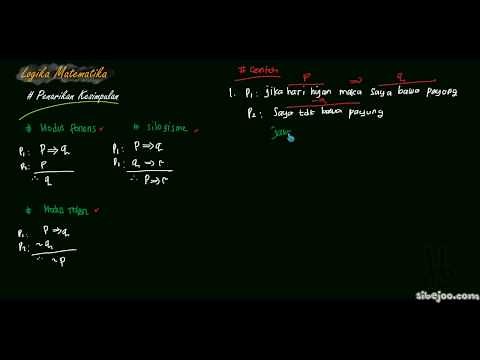 Logika Matematika
# Penarikan Kesimpulan
# Modus Ponens ✓
P₁: P ⇒ q
P₂: P
∴ q
# silogisme ✓
P₁: P ⇒ q
P₂: q ⇒ r
∴ P ⇒ r
# Modus Tollen ✓
P₁: P ⇒ q
P₂: ~q
∴ ~P
# Contoh
P ⇒ q
1. P₁: jika hari hujan maka saya bawa payung
~q
P₂: Saya tdk bawa payung
sibejoo.com